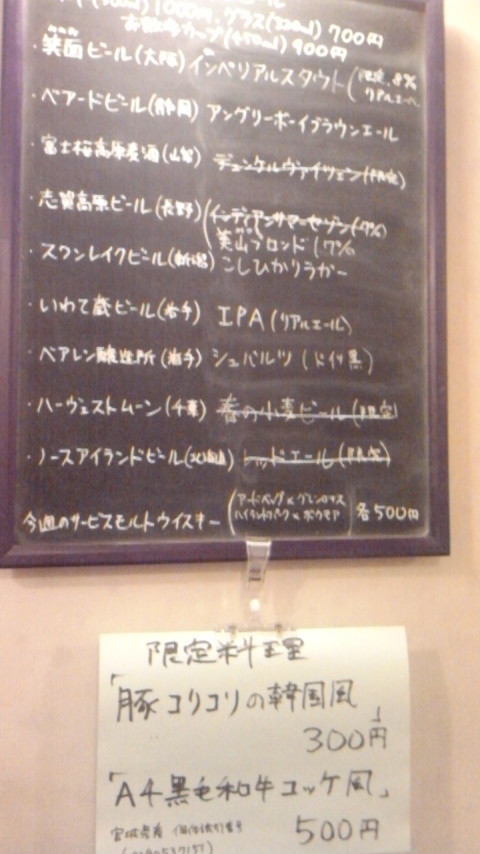 1000円・グラス(320ml) 700円
お散歩カップ(450ml) 900円
・箕面ビール(大阪) インペリアルスタウト(限定 8%
リアルエール
・ベアードビール(静岡) アングリーボーイブラウンエール
・富士桜高原麦酒(山梨) デュンケルヴァイツェン(限定)
・志賀高原ビール(長野) (インディアンサマーセゾン(7%)
美山ブロンド(7%
・スワンレイクビール(新潟) こしひかりラガー
・いわて蔵ビール(岩手) IPA(リアルエール)
・ベアレン醸造所(岩手) シュバルツ(ドイツ黒)
・ハーヴェストムーン(千葉) 春の小麦ビール(限定)
・ノースアイランドビール(北海道) レッドエール(限定)
今週のサービスモルトウイスキー (アードベッグ×グレンロセス
ハイランドパーク×ボウモア) 各500円
限定料理
「豚コリコリの韓国風」
300円
「A4黒毛和牛ユッケ風」
宮城県産 個体識別番号
500円